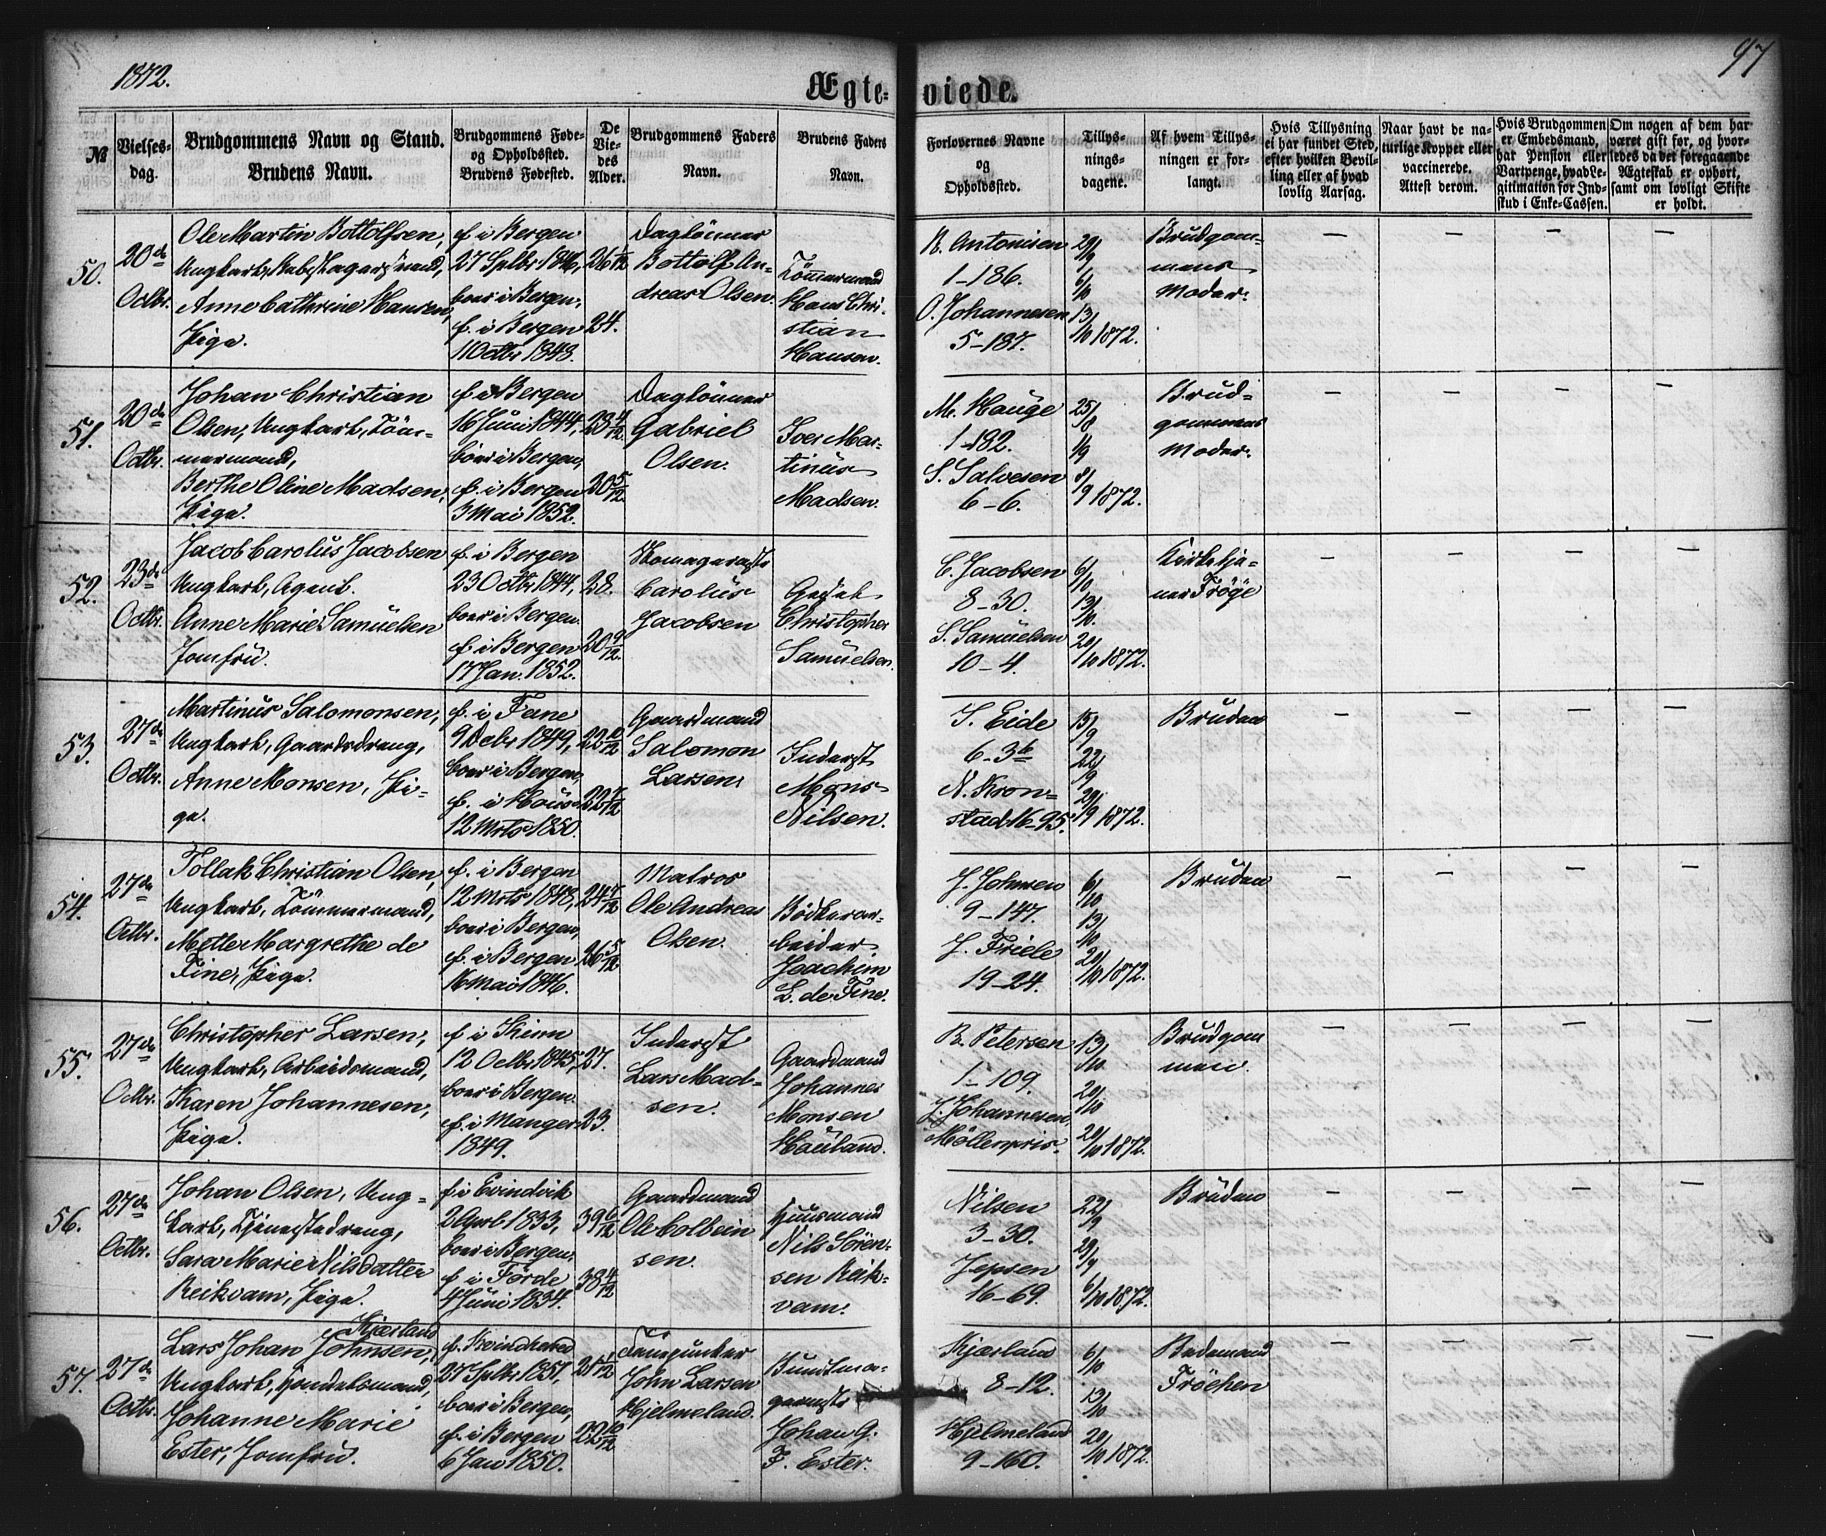 1872.
97
Ægte-
viede.
№
Vielses-
dag.
Brudgommens Navn og Stand.
Brudens Navn.
Brudgommens Føde-
og Opholdssted.
Brudens Fødested.
De
Vie-
des
Alder.
Brudgommens Faders
Navn.
Brudens Faders
Navn.
Forlovernes Navne
og
Opholdssted.
Tillys-
nings-
dagene.
Af hvem Tillys-
ningen er for-
langt.
Hvis Tillysning
ei har fundet Sted,
efter hvilken Bevil-
ling eller af hvad
lovlig Aarsag.
Naar havt de na-
turlige Kopper eller
vaccinerede.
Attest derom.
Hvis Brudgommen
er Embedsmand,
har Pension eller
Vartpenge, hvad Le-
gitimation for Ind-
skud i Enke-Cassen.
Om nogen af dem har
været gift før, og hvor-
ledes da det foregaaende
Ægteskab er ophørt,
samt om lovligt Skifte
er holdt.
50.
20de
Octbr.
Ole Martin Bottolfsen,
Ungkarl,
Anne Cathrine Hansen,
Pige.
f. i Bergen
27 Sptbr 1846,
boer i Bergen,
f. i Bergen
11 Octbr 1848.
26 1/12
24.
Daglönner
Bottolf An-
dreas Olsen.
Tömmermand
Hans Chri-
stian
Hansen.
R. Antonisen
1-186.
O. Johannesen
5-187.
29/9
6/10
13/10 1872.
Brudgom-
mens
Moder.
— — — —
51.
20de
Octbr.
Johan Christian
Olsen, Ungkarl, Töm-
mermand,
Berthe Oline Madsen,
Pige.
f. i Bergen
16 Juni 1844,
boer i Bergen,
f. i Bergen
3 Mai 1852.
28 4/12
20 5/12
Daglönner
Gabriel
Olsen.
Iver Mar-
tinus
Madsen.
M. Hauge
1-182.
S. Salvesen
6-6.
25/8
1/9
8/9 1872.
Brud-
gommens
Moder.
— — — —
52.
23de
Octbr.
Jacob Carolus Jacobsen
Ungkarl, Agent.
Anne Marie Samuelsen
Jomfru.
f. i Bergen
23 Octbr 1844,
boer i Bergen.
f. i Bergen
17 Jan. 1852.
28.
20 9/12
Carolus
Jacobsen
Christopher
Samuelsen.
C. Jacobsen
8-30.
S. Samuelsen
10-4.
6/10
13/10.
20/10 1872.
Kirketje-
ner Fröge
— — — —
53.
27de
Octbr.
Martinus Salomonsen,
Ungkarl, Gaardsdreng,
Anne Monsen, Pi-
ge.
f. i Fane
9 Decbr 1849,
boer i Bergen,
f. i Haus
12 Mrts 1850.
22 10/12
22 7/12
Gaardmand
Salomon
Larsen,
Inderst
Mons
Nilsen.
S. Eide
6-3b
N. Kron-
stad 16-95.
15/9
22/9
29/9 1872.
Bruden
— — — —
54.
27de
Octbr.
Tollak Christian Olsen,
Ungkarl, Tömmermand,
Mette Margrethe de
Fine, Pige.
f. i Bergen
12 Mrts 1848,
boer i Bergen,
f. i Bergen
16 Mai 1846.
24 7/12
26 5/12
Matros
Ole Andreas
Olsen.
Bödkerar-
beider
Joachim
L. de Fine.
J. Johnsen
9-147.
J. Friele
19-24.
6/10
13/10
20/10 1872.
Bruden
— — — —
55.
27de
Octbr.
Christopher Larsen,
Ungkarl, Arbeidsmand,
Karen Johannesen,
Pige.
f. i Kinn
12 Octbr 1845,
boer i Bergen.
f. i Manger
1849.
27.
23.
Inderst
Lars Mad-
sen.
Gaardmand
Johannes
Monsen
Hauland.
B. Petersen
1-109.
J. Johannesen,
Möllenpris.
13/10
20/10
20/10 1872.
Brudgom
men.
— — — —
56.
27de
Octbr.
Johan Olsen, Ung-
karl, Tjenestedreng,
Sara Marie Nilsdatter
Reikvam, Pige.
f. i Evindvik
2 April 1833,
boer i Bergen,
f. i Förde
4 Juni 1834.
39 6/12
38 4/12
Gaardmand
Ole Colbein
sen.
Huusmand
Nils Sören-
sen Reik-
vam.
Nilsen
3-30.
Jepsen
16-69.
22/9
29/9
6/10 1872.
Bruden
— — — —
57.
27de
Octbr.
Kjærland
Lars Johan Johnsen,
Ungkarl, Handelsmand,
Johanne Marie
Ester, Jomfru.
f. Kvindhered
27 Sptbr 1851,
boer i Bergen,
f. i Bergen
6 Jan 1850.
21 1/12
22 10/12
John Larsen
Hjelmeland.
Buntma-
germstr
Johan G.
F. Ester.
Kjærland
8-12.
Hjelmeland
9-160.
6/10
13/10
20/10 1872.
Bedemand
Fröchen
— — — —